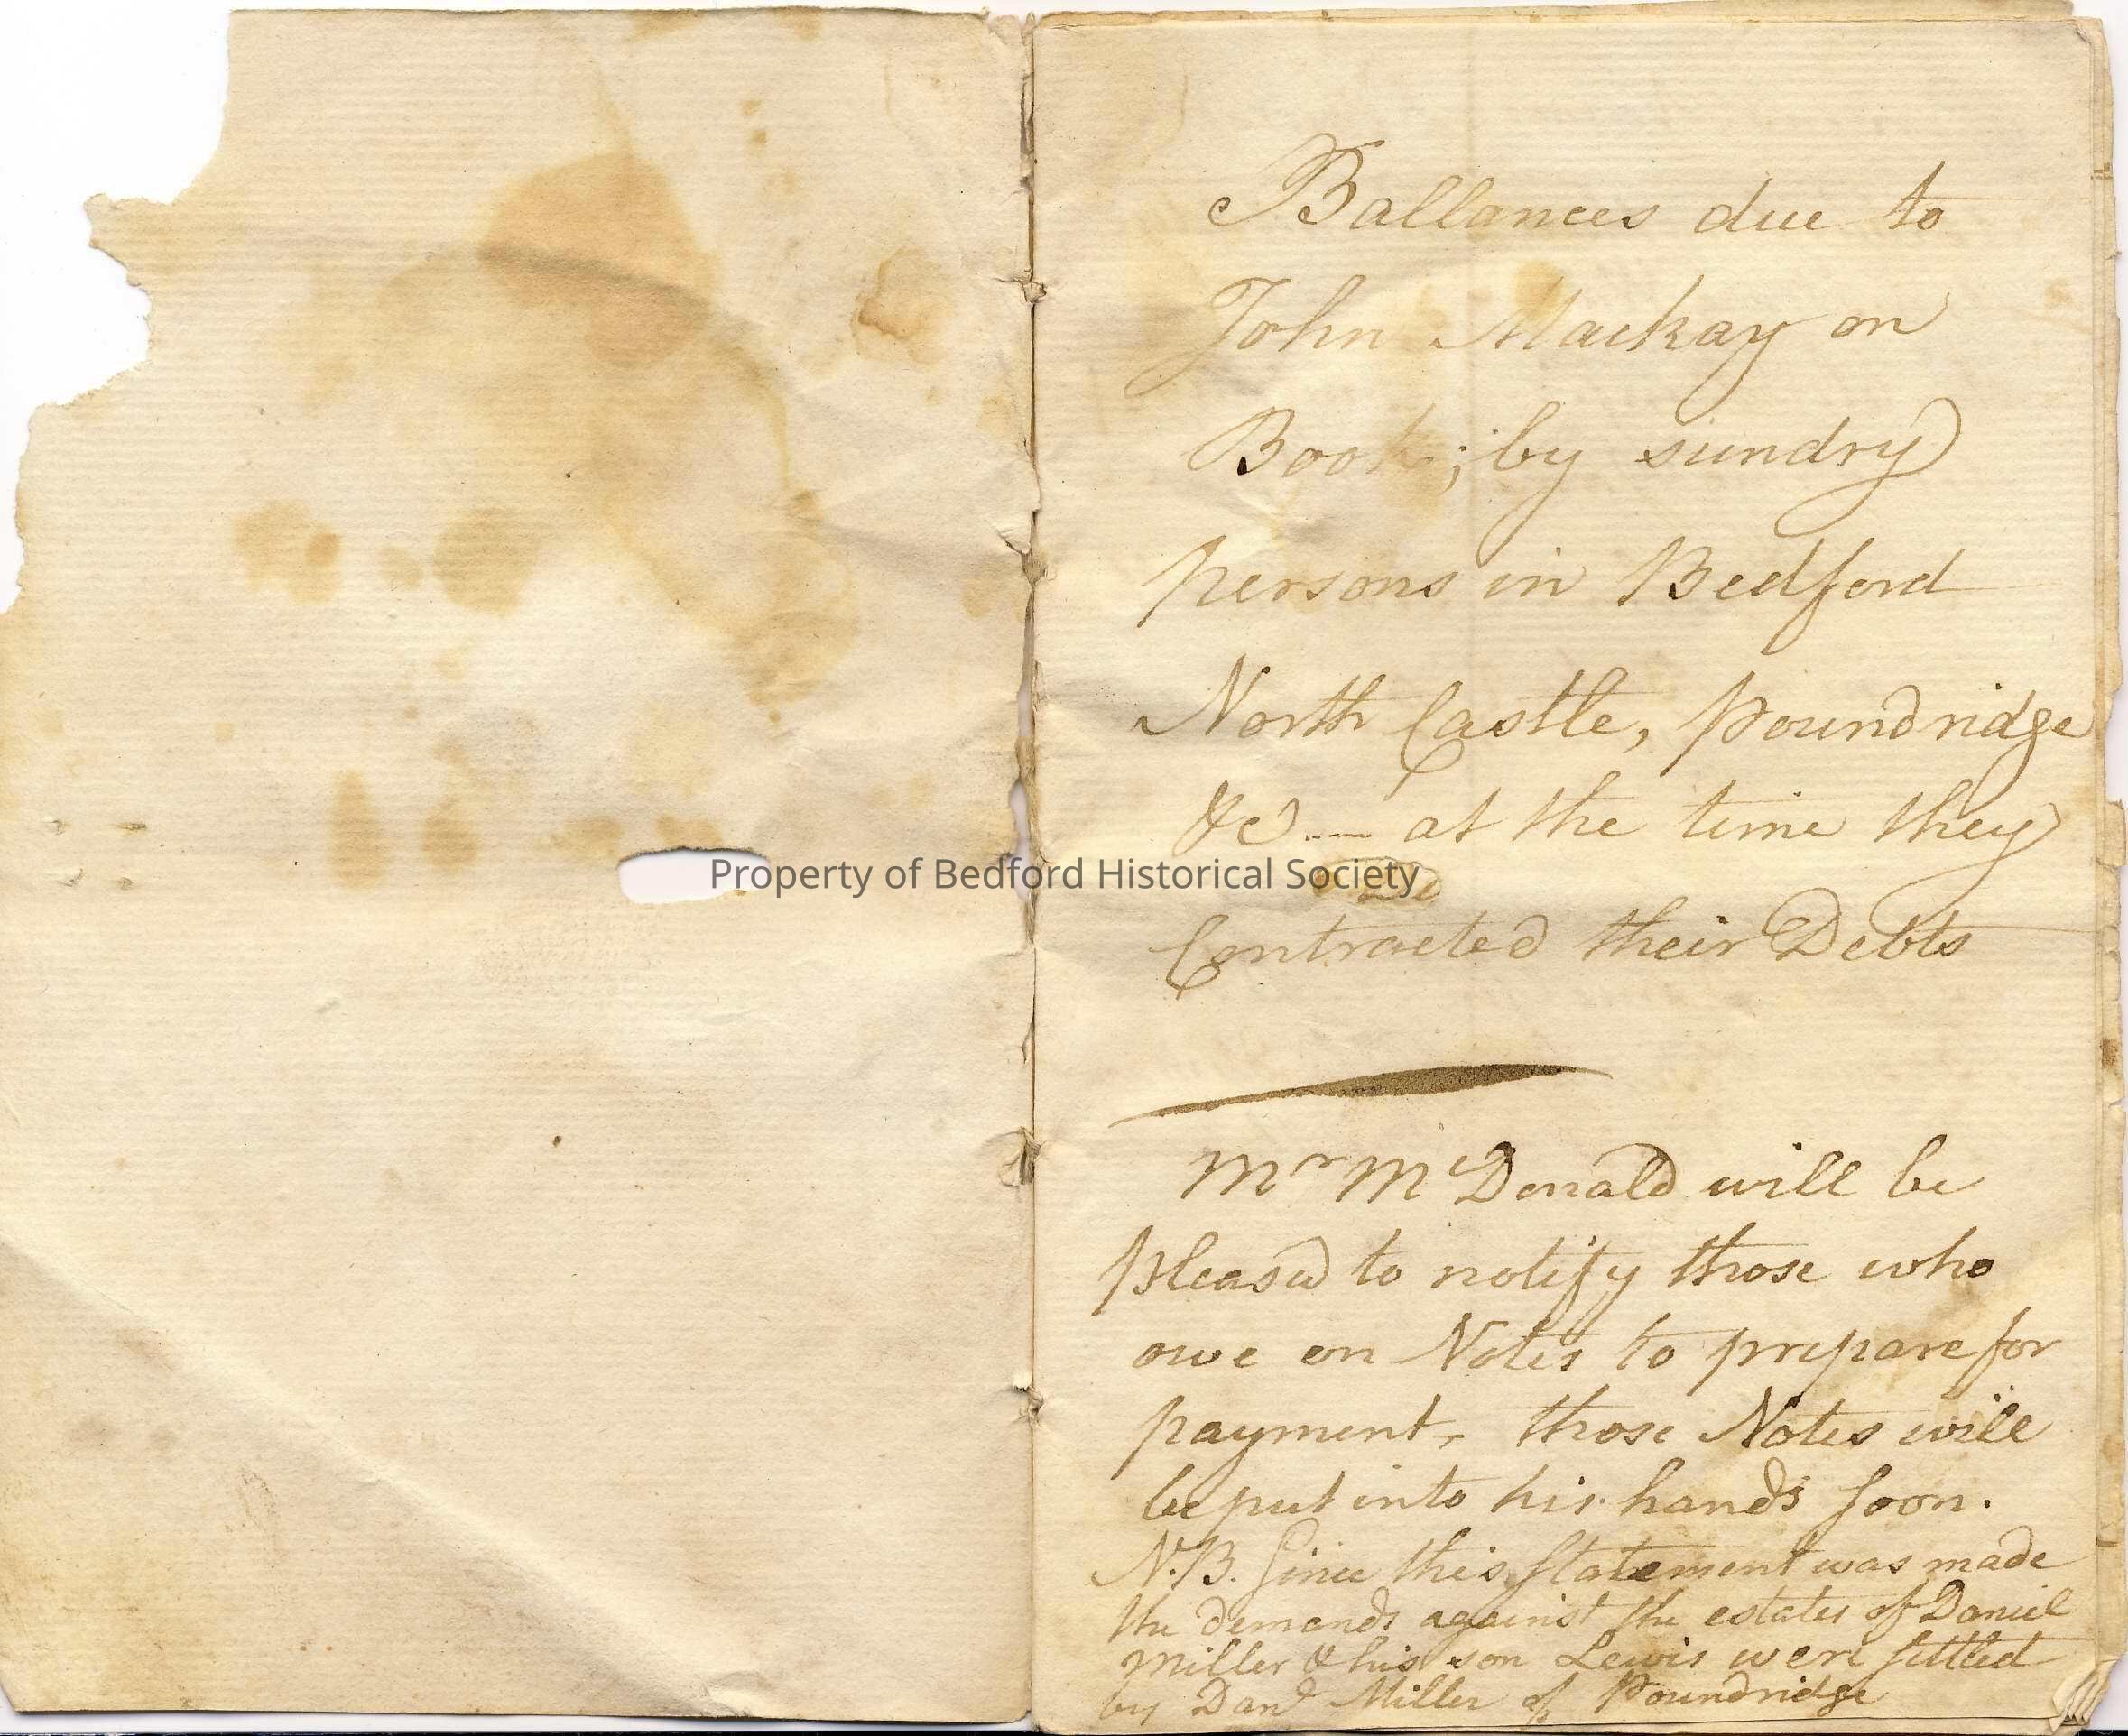 Ballances due to
John Mackay on
Book; by sundry
persons in Bedford
North Castle, Poundridge
&c --- at the time they
Contracted their Debts
Property of Bedford Historical Society
Mr McDonald will be
pleasd to notify those who
owe on Notes to prepare for
payment, those Notes will
be put into his hands soon.
N.B. Since this Statement was made
the demands against the estates of Daniel
Miller & his son Lewis were settled
by Danl Miller of Poundridge